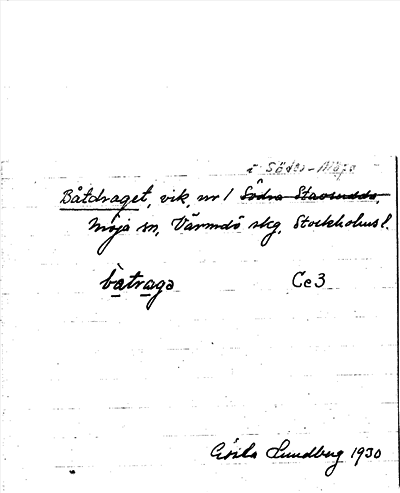 i Söder-Möja
Båtdraget, vik, nr 1 Södra Stavsudda,
Möja sn, Värmdö skg, Stockholms l.
bàtragə Ce3
Gösta Lundberg 1930